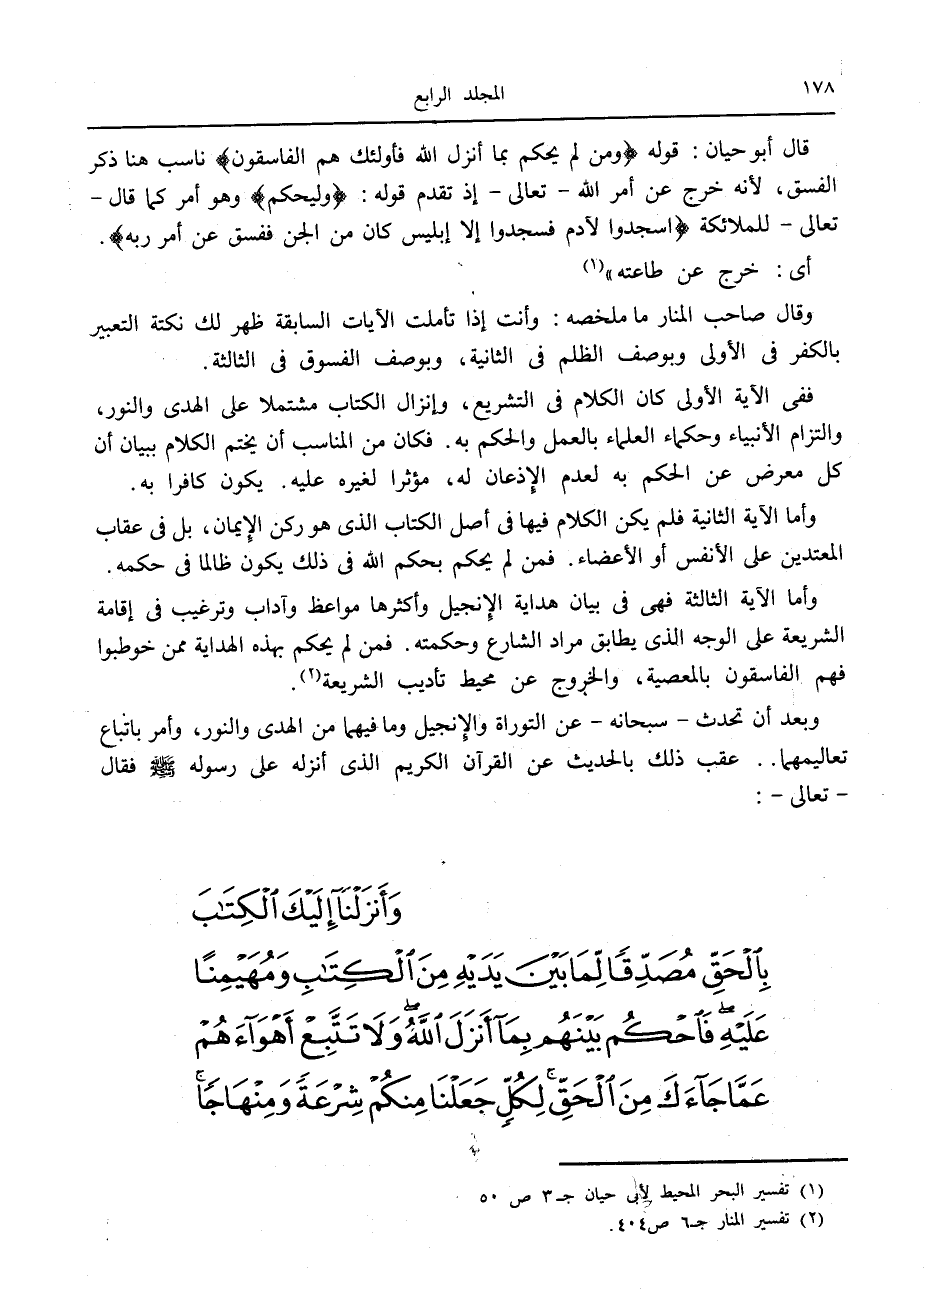 ١٧٨
المجلد الرابع
قال أبو حيان : قوله ﴿ومن لم يحكم بما أنزل الله فأولئك هم الفاسقون﴾ ناسب هنا ذكر
الفسق، لأنه خرج عن أمر الله - تعالى - إذ تقدم قوله : ﴿وليحكم﴾ وهو أمر كما قال -
تعالى - للملائكة ﴿اسجدوا لآدم فسجدوا إلا إبليس كان من الجن ففسق عن أمر ربه﴾.
أى : خرج عن طاعته»(١)
وقال صاحب المنار ما ملخصه : وأنت إذا تأملت الآيات السابقة ظهر لك نكتة التعبير
بالكفر فى الأولى وبوصف الظلم فى الثانية، وبوصف الفسوق فى الثالثة.
ففى الآية الأولى كان الكلام فى التشريع، وإنزال الكتاب مشتملا على الهدى والنور،
والتزام الأنبياء وحكماء العلماء بالعمل والحكم به. فكان من المناسب أن يختم الكلام ببيان أن
كل معرض عن الحكم به لعدم الإذعان له، مؤثرا لغيره عليه. يكون كافرا به.
وأما الآية الثانية فلم يكن الكلام فيها فى أصل الكتاب الذى هو ركن الإيمان، بل فى عقاب
المعتدين على الأنفس أو الأعضاء. فمن لم يحكم بحكم الله فى ذلك يكون ظالما فى حكمه.
وأما الآية الثالثة فهى فى بيان هداية الإنجيل وأكثرها مواعظ وآداب وترغيب فى إقامة
الشريعة على الوجه الذى يطابق مراد الشارع وحكمته. فمن لم يحكم بهذه الهداية ممن خوطبوا
فهم الفاسقون بالمعصية، والخروج عن محيط تأديب الشريعة(٢).
وبعد أن تحدث - سبحانه - عن التوراة والإنجيل وما فيهما من الهدى والنور، وأمر باتباع
تعاليمهما.. عقب ذلك بالحديث عن القرآن الكريم الذى أنزله على رسوله ﷺ فقال
- تعالى - :
وَأَنزَلْنَآ إِلَيْكَ ٱلْكِتَٰبَ
بِٱلْحَقِّ مُصَدِّقًا لِّمَا بَيْنَ يَدَيْهِ مِنَ ٱلْكِتَٰبِ وَمُهَيْمِنًا
عَلَيْهِ ۖ فَٱحْكُم بَيْنَهُم بِمَآ أَنزَلَ ٱللَّهُ ۖ وَلَا تَتَّبِعْ أَهْوَآءَهُمْ
عَمَّا جَآءَكَ مِنَ ٱلْحَقِّ ۚ لِكُلٍّ جَعَلْنَا مِنكُمْ شِرْعَةً وَمِنْهَاجًا ۚ
(١) تفسير البحر المحيط لأبى حيان جـ٣ ص ٥٠
(٢) تفسير المنار جـ٦ ص٤٠٤.